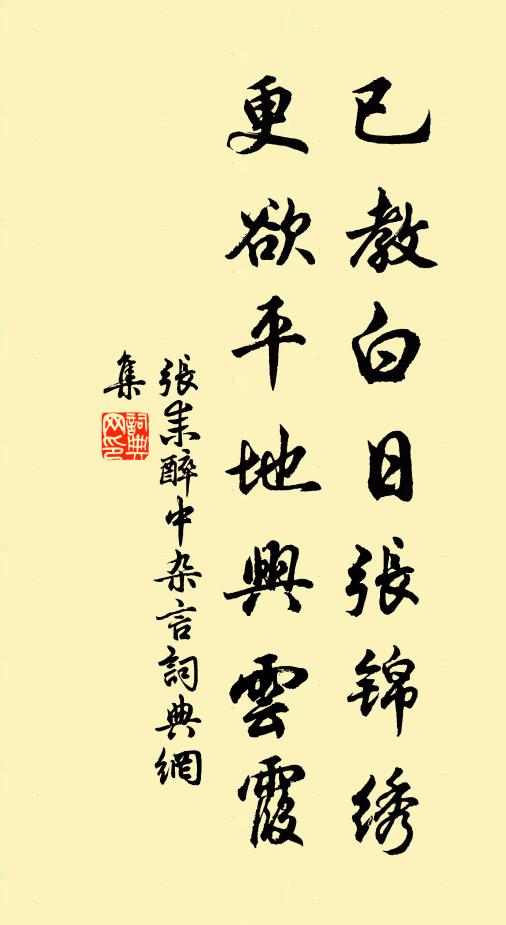 已教白日張锦绣
更欲平地興雲霞
張耒醉中杂言詞典網
集
詞典网印